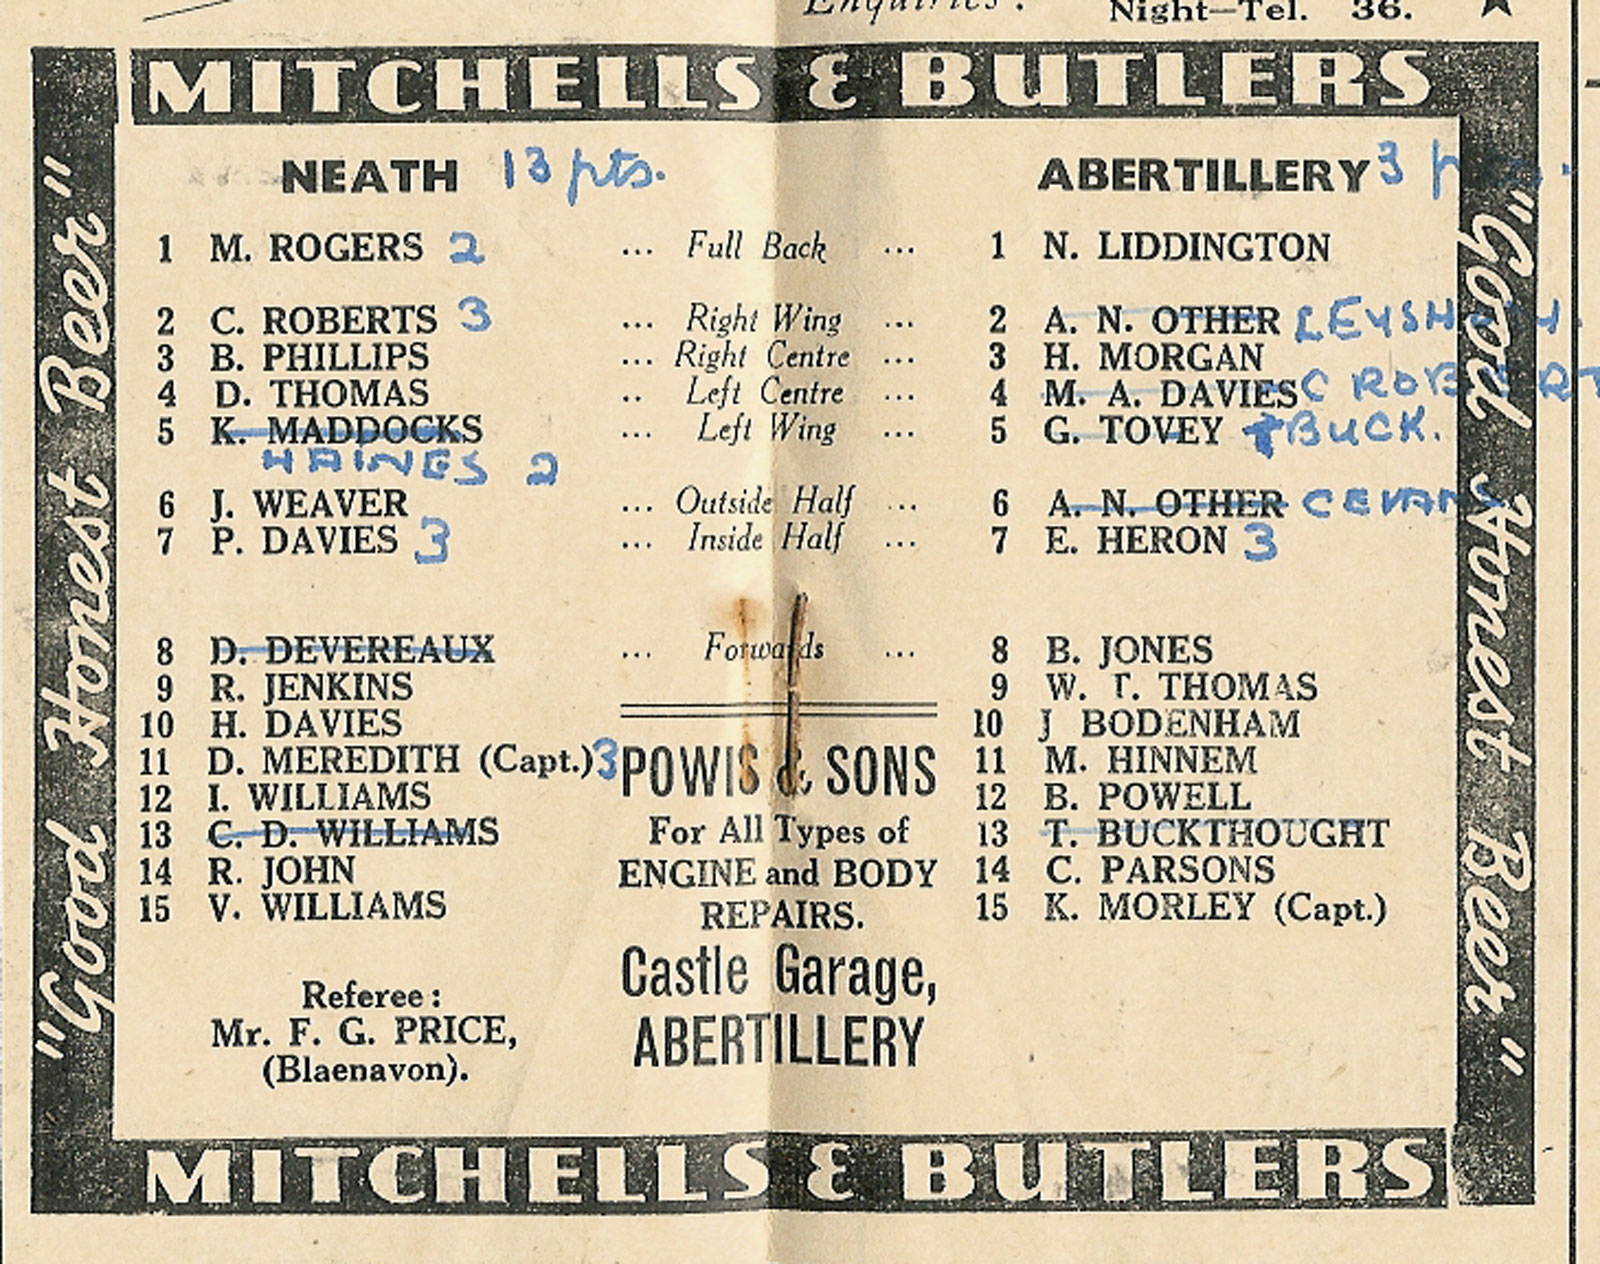 Enquiries: Night—Tel. 36. ★
MITCHELLS & BUTLERS
"Good Honest Beer"
NEATH 13 pts. ABERTILLERY 3 pts.
1 M. ROGERS 2 ... Full Back ... 1 N. LIDDINGTON
2 C. ROBERTS 3 ... Right Wing ... 2 A. N. OTHER LEYSHON.
3 B. PHILLIPS ... Right Centre ... 3 H. MORGAN
4 D. THOMAS .. Left Centre ... 4 M. A. DAVIES C ROBERT
5 K. MADDOCKS ... Left Wing ... 5 G. TOVEY BUCK.
HAINES 2
6 J. WEAVER ... Outside Half ... 6 A. N. OTHER C EVANS
7 P. DAVIES 3 ... Inside Half ... 7 E. HERON 3
8 D. DEVEREAUX ... Forwards ... 8 B. JONES
9 R. JENKINS 9 W. T. THOMAS
10 H. DAVIES 10 J BODENHAM
11 D. MEREDITH (Capt.) 3 11 M. HINNEM
12 I. WILLIAMS 12 B. POWELL
13 C. D. WILLIAMS 13 T. BUCKTHOUGHT
14 R. JOHN 14 C. PARSONS
15 V. WILLIAMS 15 K. MORLEY (Capt.)
POWIS & SONS
For All Types of
ENGINE and BODY
REPAIRS.
Castle Garage,
ABERTILLERY
Referee:
Mr. F. G. PRICE,
(Blaenavon).
"Good Honest Beer"
MITCHELLS & BUTLERS